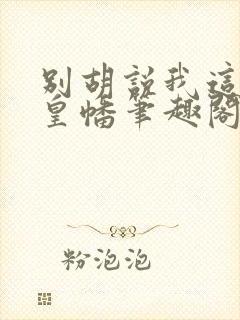 别胡说我这
皇幡笔趣阁
粉泡泡